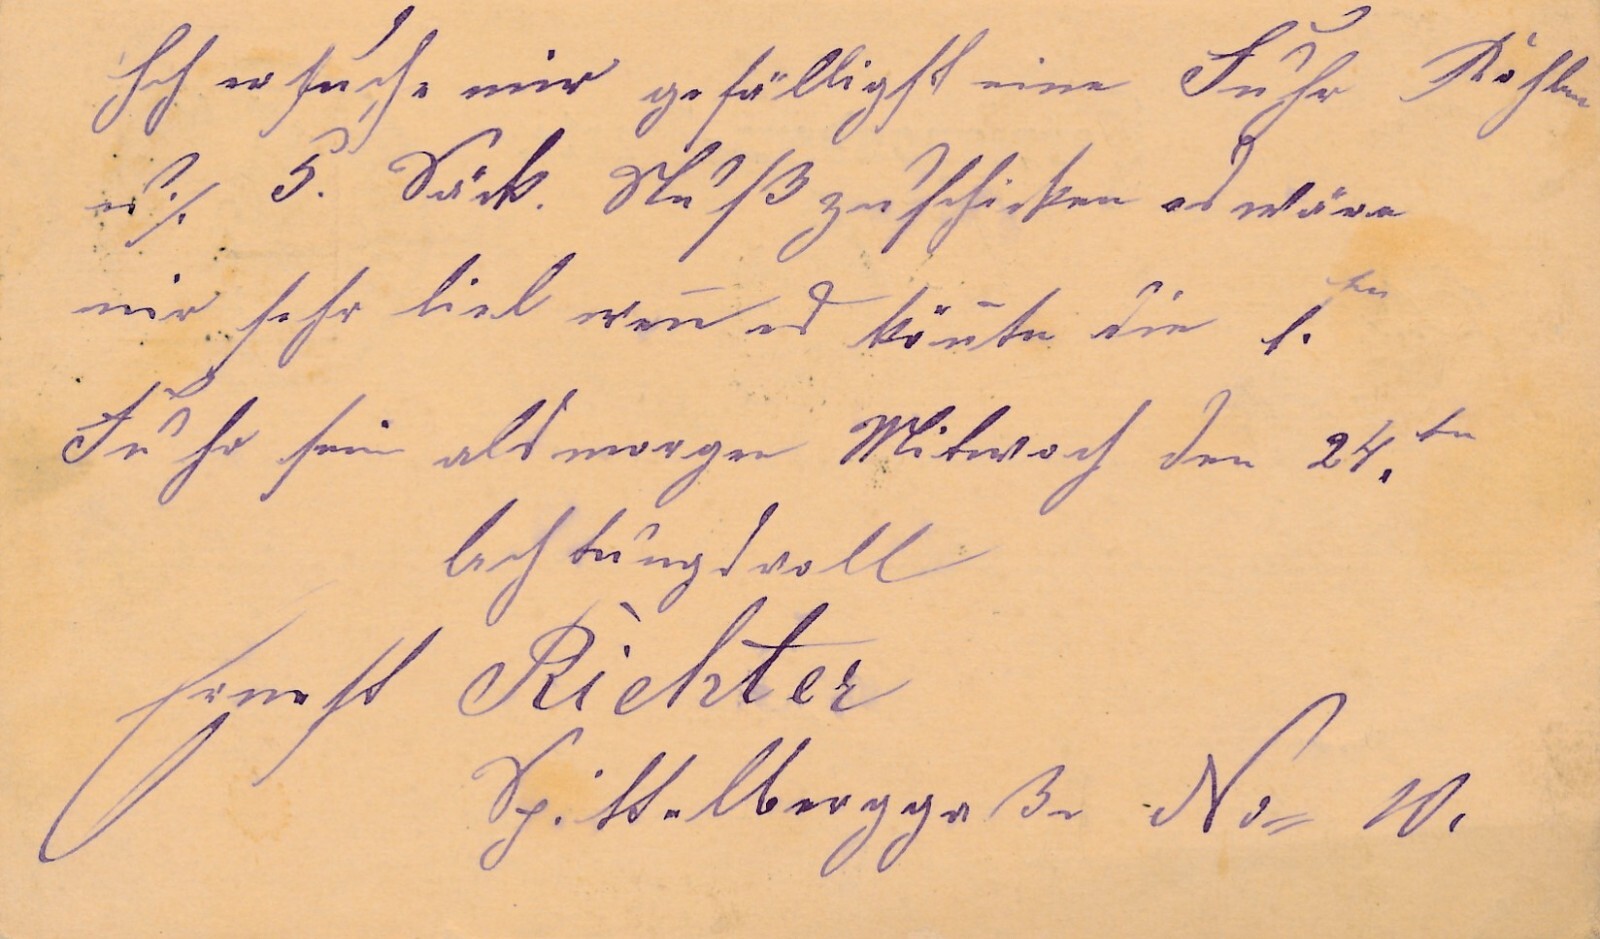 Ich ersuche mir gefälligst eine Fuhr Kohlen
5. Säck. Nuß zuschicken es wäre
mir sehr lieb wen̄ es kön̄te die 1.ten
Fuhr sein als morgen Mitwoch den 24.ten
Achtungsvoll
Ernest Richter
Spittelberggaße No 10.